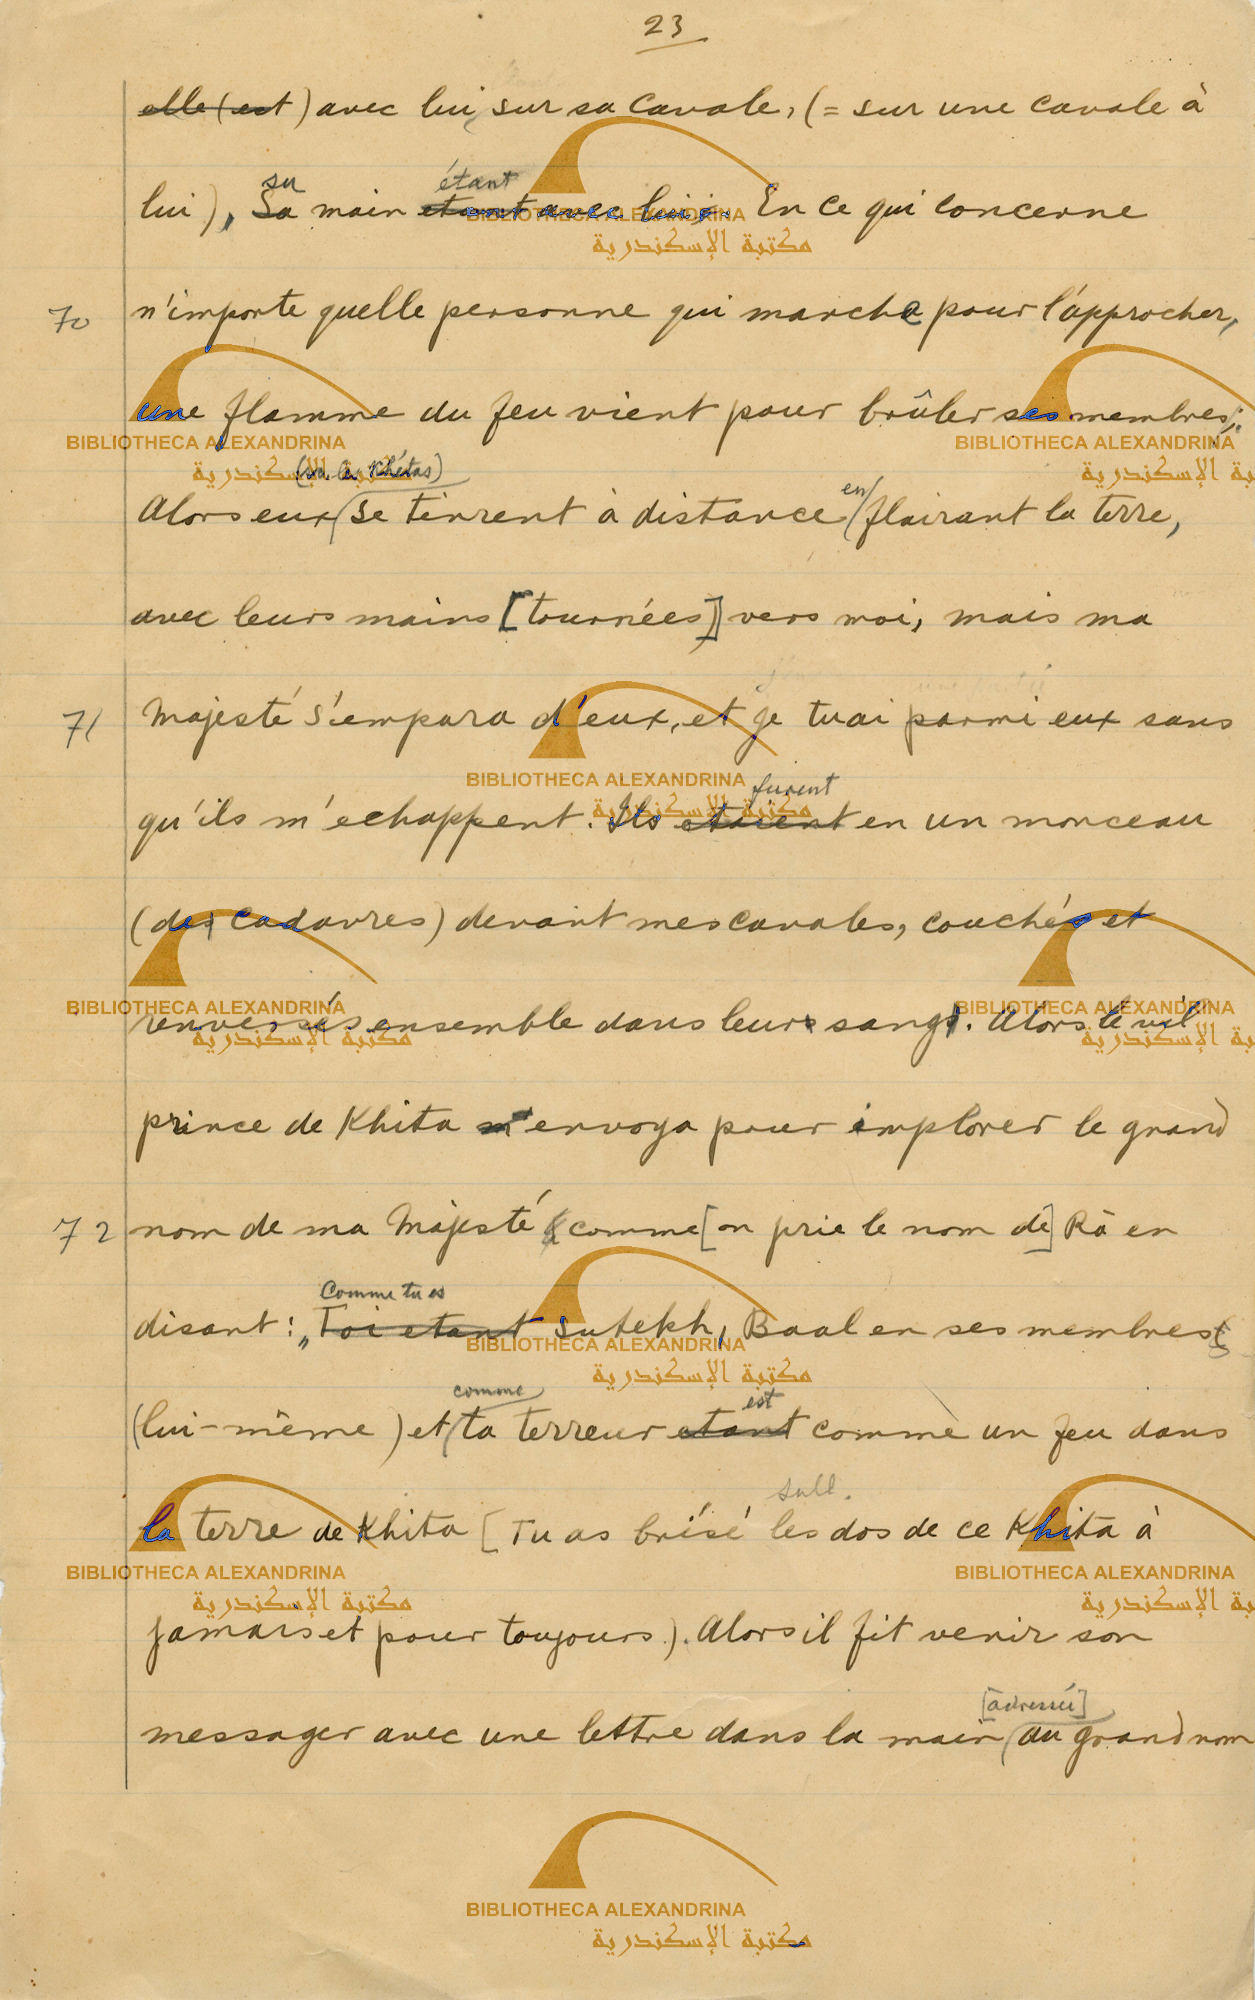 23
elle (est) avec lui, sur sa cavale, (= sur une cavale à
su étant
lui), Sa main etant avec lui; En ce qui concerne
70 n'importe quelle personne qui marche pour l'approcher,
une flamme du feu vient pour brûler ses membres;
Khétas)
Alors eux se tinrent à distance en flairant la terre,
avec leurs mains [tournées] vers moi, mais ma
71 Majesté s'empara d'eux, et je tuai parmi eux sans
furent
qu'ils m'echappent. Ils etaient en un monceau
(des cadavres) devant mes cavales, couchés et
renversés ensemble dans leurs sangs. Alors le vil
prince de Khita m'envoya pour implorer le grand
72 nom de ma Majesté comme [on prie le nom de] Râ en
Comme tu es
disant: „Toi etant Sutekh, Baal en ses membres
comme est
(lui-même) et ta terreur etant comme un feu dans
la terre de Khita [Tu as brisé les dos de ce Khita à
jamais et pour toujours). Alors il fit venir son
[adressée]
messager avec une lettre dans la main au grand nom
BIBLIOTHECA ALEXANDRINA
مكتبة الإسكندرية
BIBLIOTHECA ALEXANDRINA
مكتبة الإسكندرية
BIBLIOTHECA ALEXANDRINA
BIBLIOTHECA ALEXANDRINA
مكتبة الإسكندرية
BIBLIOTHECA ALEXANDRINA
مكتبة الإسكندرية
BIBLIOTHECA ALEXANDRINA
BIBLIOTHECA ALEXANDRINA
مكتبة الإسكندرية
BIBLIOTHECA ALEXANDRINA
مكتبة الإسكندرية
BIBLIOTHECA ALEXANDRINA
BIBLIOTHECA ALEXANDRINA
مكتبة الإسكندرية